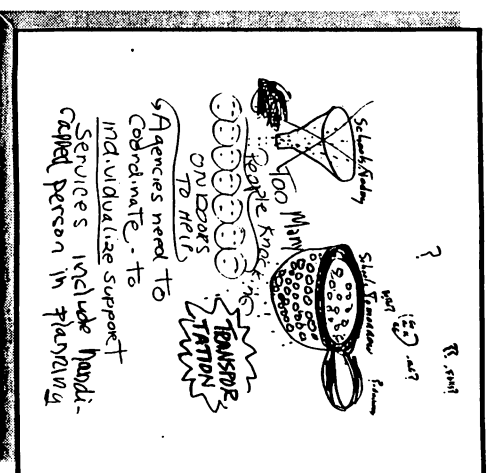 Schools Today
Schools Tomorrow
Too Many
People Knocking
on Doors
to Help
TRANSPOR
TATION
Agencies need to
coordinate - to
individualize support
Services include handi-
capped person in planning
?